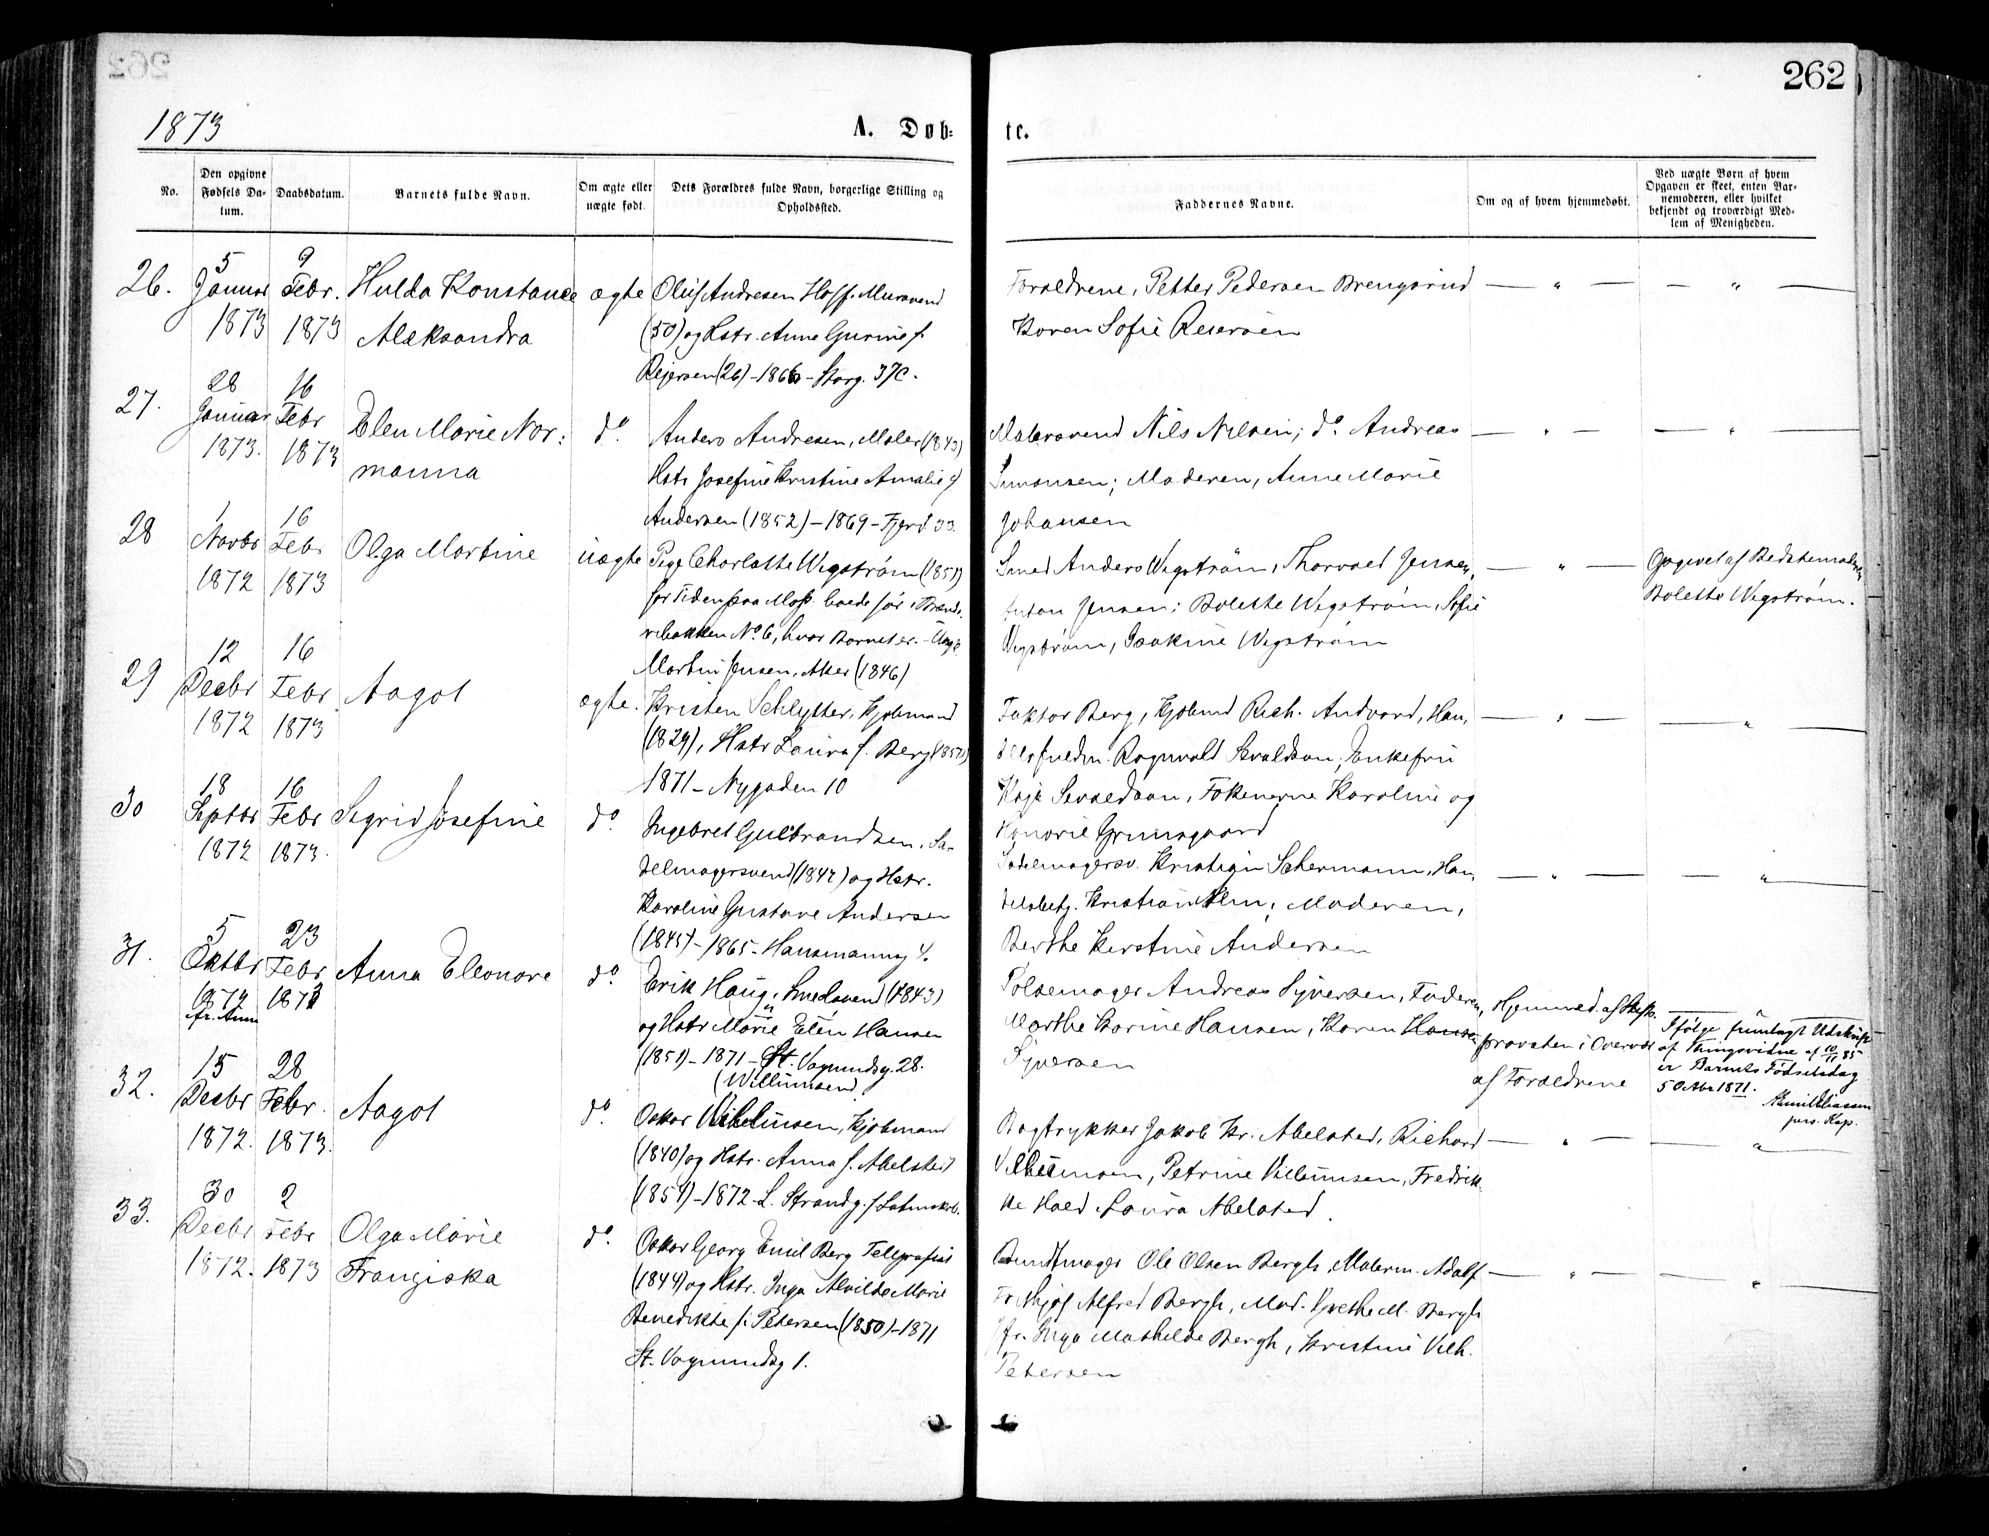 262
1873
A. Døb-
te.
No.
Den opgivne
Fødsels Da-
tum.
Daabsdatum.
Barnets fulde Navn.
Om ægte eller
uægte født.
Dets Forældres fulde Navn, borgerlige Stilling og
Opholdssted.
Faddernes Navne.
Om og af hvem hjemmedøbt.
Ved uægte Børn af hvem
Opgaven er skeet, enten Bar-
nemoderen, eller hvilket
bekjendt og troværdigt Med-
lem af Menigheden.
26.
5
Januar
1873
9
Febr.
1873
Hulda Konstance
Aleksandra
ægte
Oluf Andresen Hoff. Mursvend
(50) og Hstr. Anne Gurine f.
Rejersen (26) - 1866 - Storg. 37C.
Forældrene, Petter Pedersen Brengsrud
Karen Sofie Reiersen
27.
28
Januar
1873.
16
Febr
1873
Elen Marie Nor:
manna
do.
Anders Andresen, Maler (1843)
Hstr Josefine Kristine Amalie f
Andersen (1852) - 1869 - Fjerd. 33.
Malersvend Nils Nilsen; do. Andreas
Simonsen; Moderen, Anne Marie
Johansen
28
1
Novbr
1872
16
Febr
1873
Olga Martine
uægte
Pige Charlotte Wigstrøm (1851)
for Tiden paa Moss. boede før i
No 6, hvor Barnet er. - Ungk
Martin Jensen, Aker (1846)
Smed Anders Wigstrøm, Thorvald Jensen,
Anton Jensen; Bolette Wigstrøm, Sofie
Wigstrøm, Joakine Wigstrøm
Opgivet af Bedstemoderen
Bolette Wigstrøm.
29
12
Decbr
1872
16
Febr
1873
Aagot
ægte.
Kristen Schlytter, Kjøbmand
(1829), Hstr Laura f. Berg (1852)
1871 - Nygaden 10
Faktor Berg, Kjøbmd Rich. Andvord, Han,
delsfuldm. Ragnvald Sevaldson; Enkefru
Kaja Sevaldson, Frøknerne Karoline og
Honorie Grimsgaard
30
18
Septbr
1872
16
Febr
1873.
Sigrid Josefine
do
Ingebret Gulbrandsen, Sa-
delmagersvend (1842) og Hstr.
Karoline Gustave Andersen
(1845) - 1865 - Hausmannsg 4.
Sadelmagersv. Kristian Schermann, Han,
delsbetj. Kristian Alm; Moderen,
Berthe Kerstine Andersen
31.
5
Oktbr
1872
23
Febr
1873
Anna Eleonore
do
Erik Haug, Smedsvend (1843)
og Hstr Marie Elén Hansen
(1851) - 1871 - St. Vognmandsg. 28.
Pølsemager Andreas Syversen, Faderen,
Marthe Karine Hansen, Karen Hansen
Syversen
Hjemmed. af Stifts
provsten i Overvær
af Forældrene
Ifølge fremlagt Udskrift
af Thingsvidne af 10/11 85
er Barnets Fødselsdag
5 Oktbr 1871.
pers. Kap.
32.
15
Decbr
1872.
28
Febr.
1873.
Aagot
do
(Willumsen)
Oskar Vilhelmsen, Kjøbmand
(1840) og Hstr. Anna f. Abelsted
(1851) - 1872 - L. Strandg.
Bogtrykker Jakob Kr. Abelsted, Richard
Villumsen, Petrine Villumsen, Fredrik-
ke Hald, Laura Abelsted.
33.
30
Decbr
1872.
2
Febr
1873
Olga Marie
Franziska
do.
Oskar Georg Emil Berg Telegrafist
(1844) og Hstr. Inga Alvilde Marie
Benedikte f. Petersen (1850) - 1871
St. Vognmandsg 1.
Buntmager Ole Olsen Bergh, Malerm. Adolf
Fridthjof Alfred Bergh, Mad. Grethe M. Bergh
Jfr. Inga Mathilde Bergh, Kristine Vilh.
Petersen